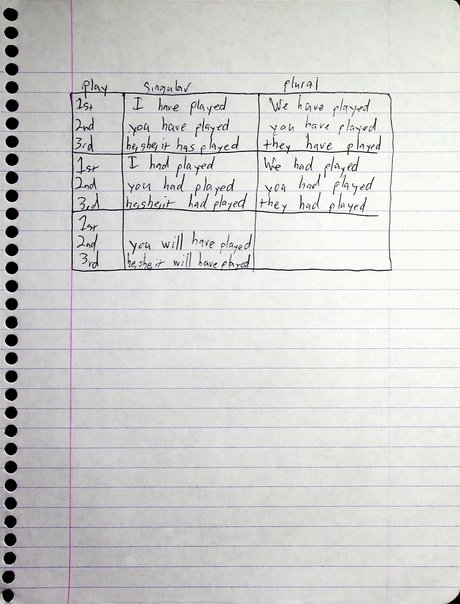 play singular plural
1st I have played We have played
2nd you have played you have played
3rd he,she,it has played they have played
1st I had played We had played
2nd you had played you had played
3rd he,she,it had played they had played
1st
2nd you will have played
3rd he,she,it will have played